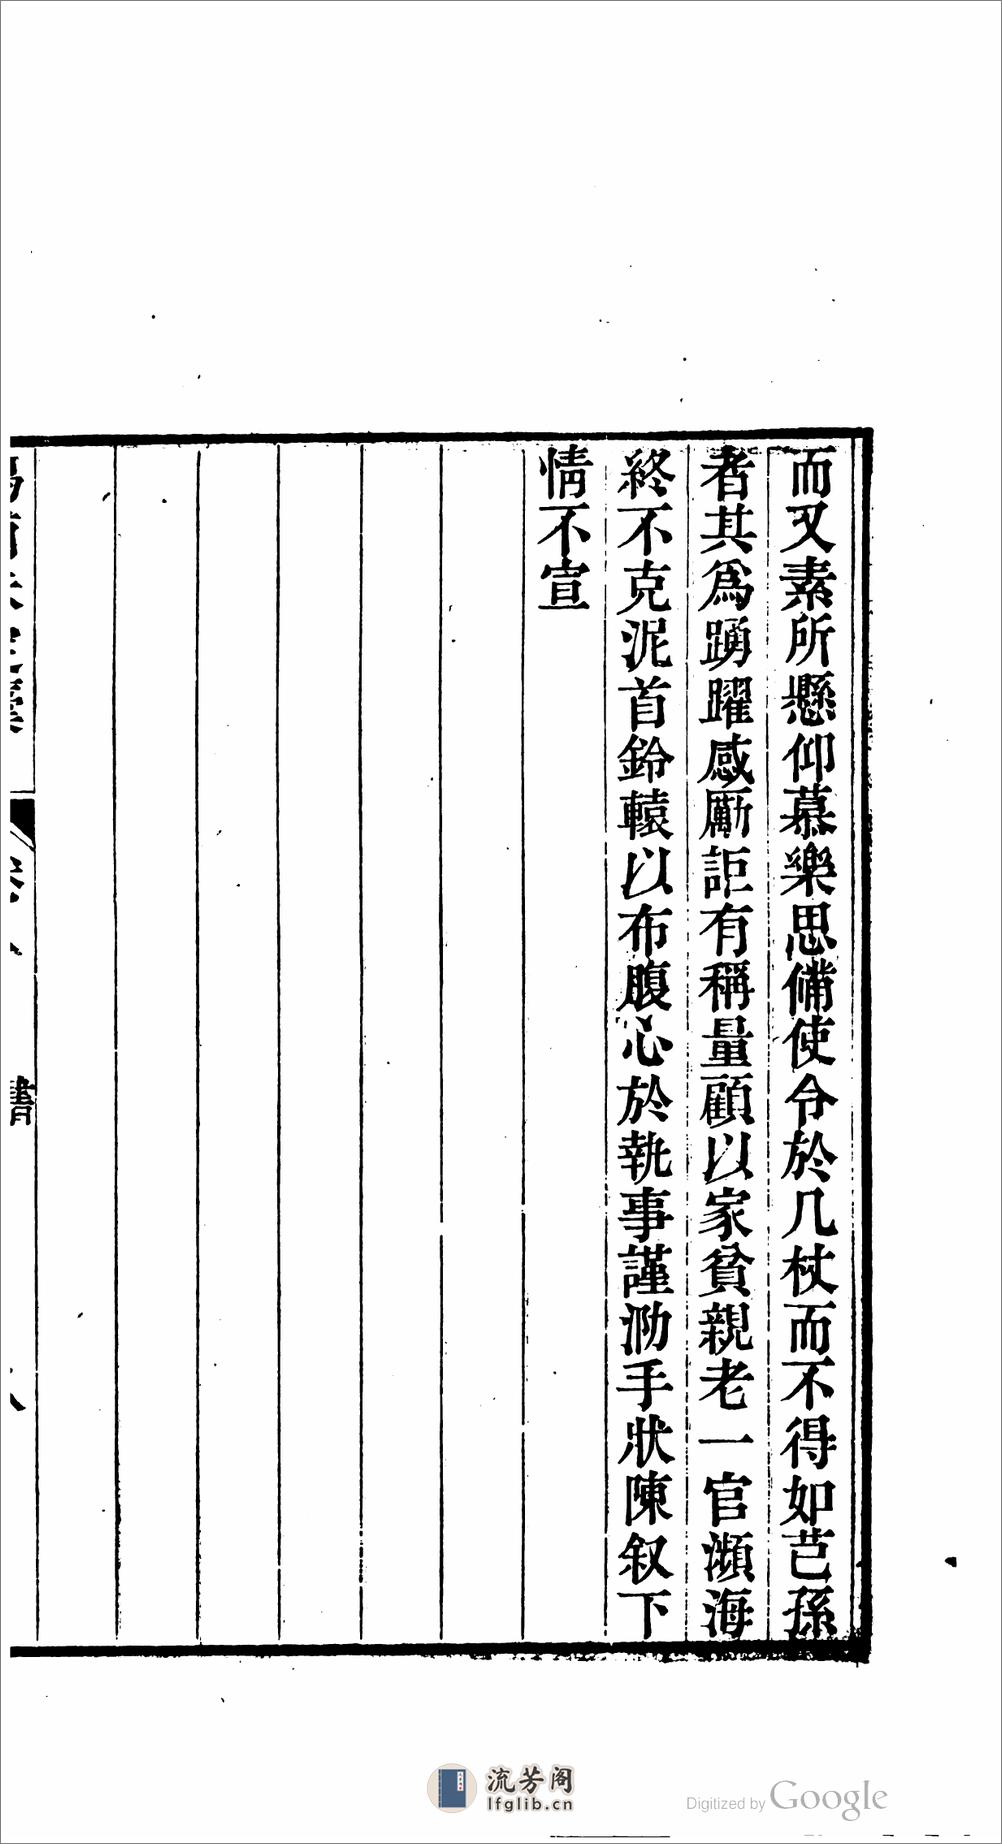 而又素所懸仰慕樂思備使令於几杖而不得如芑孫
者其爲踴躍感勵詎有稱量顧以家貧親老一官瀕海
終不克泥首鈴轅以布腹心於執事謹泐手狀陳叙下
情不宣
書
流芳阁
lfglib.cn
Digitized by Google